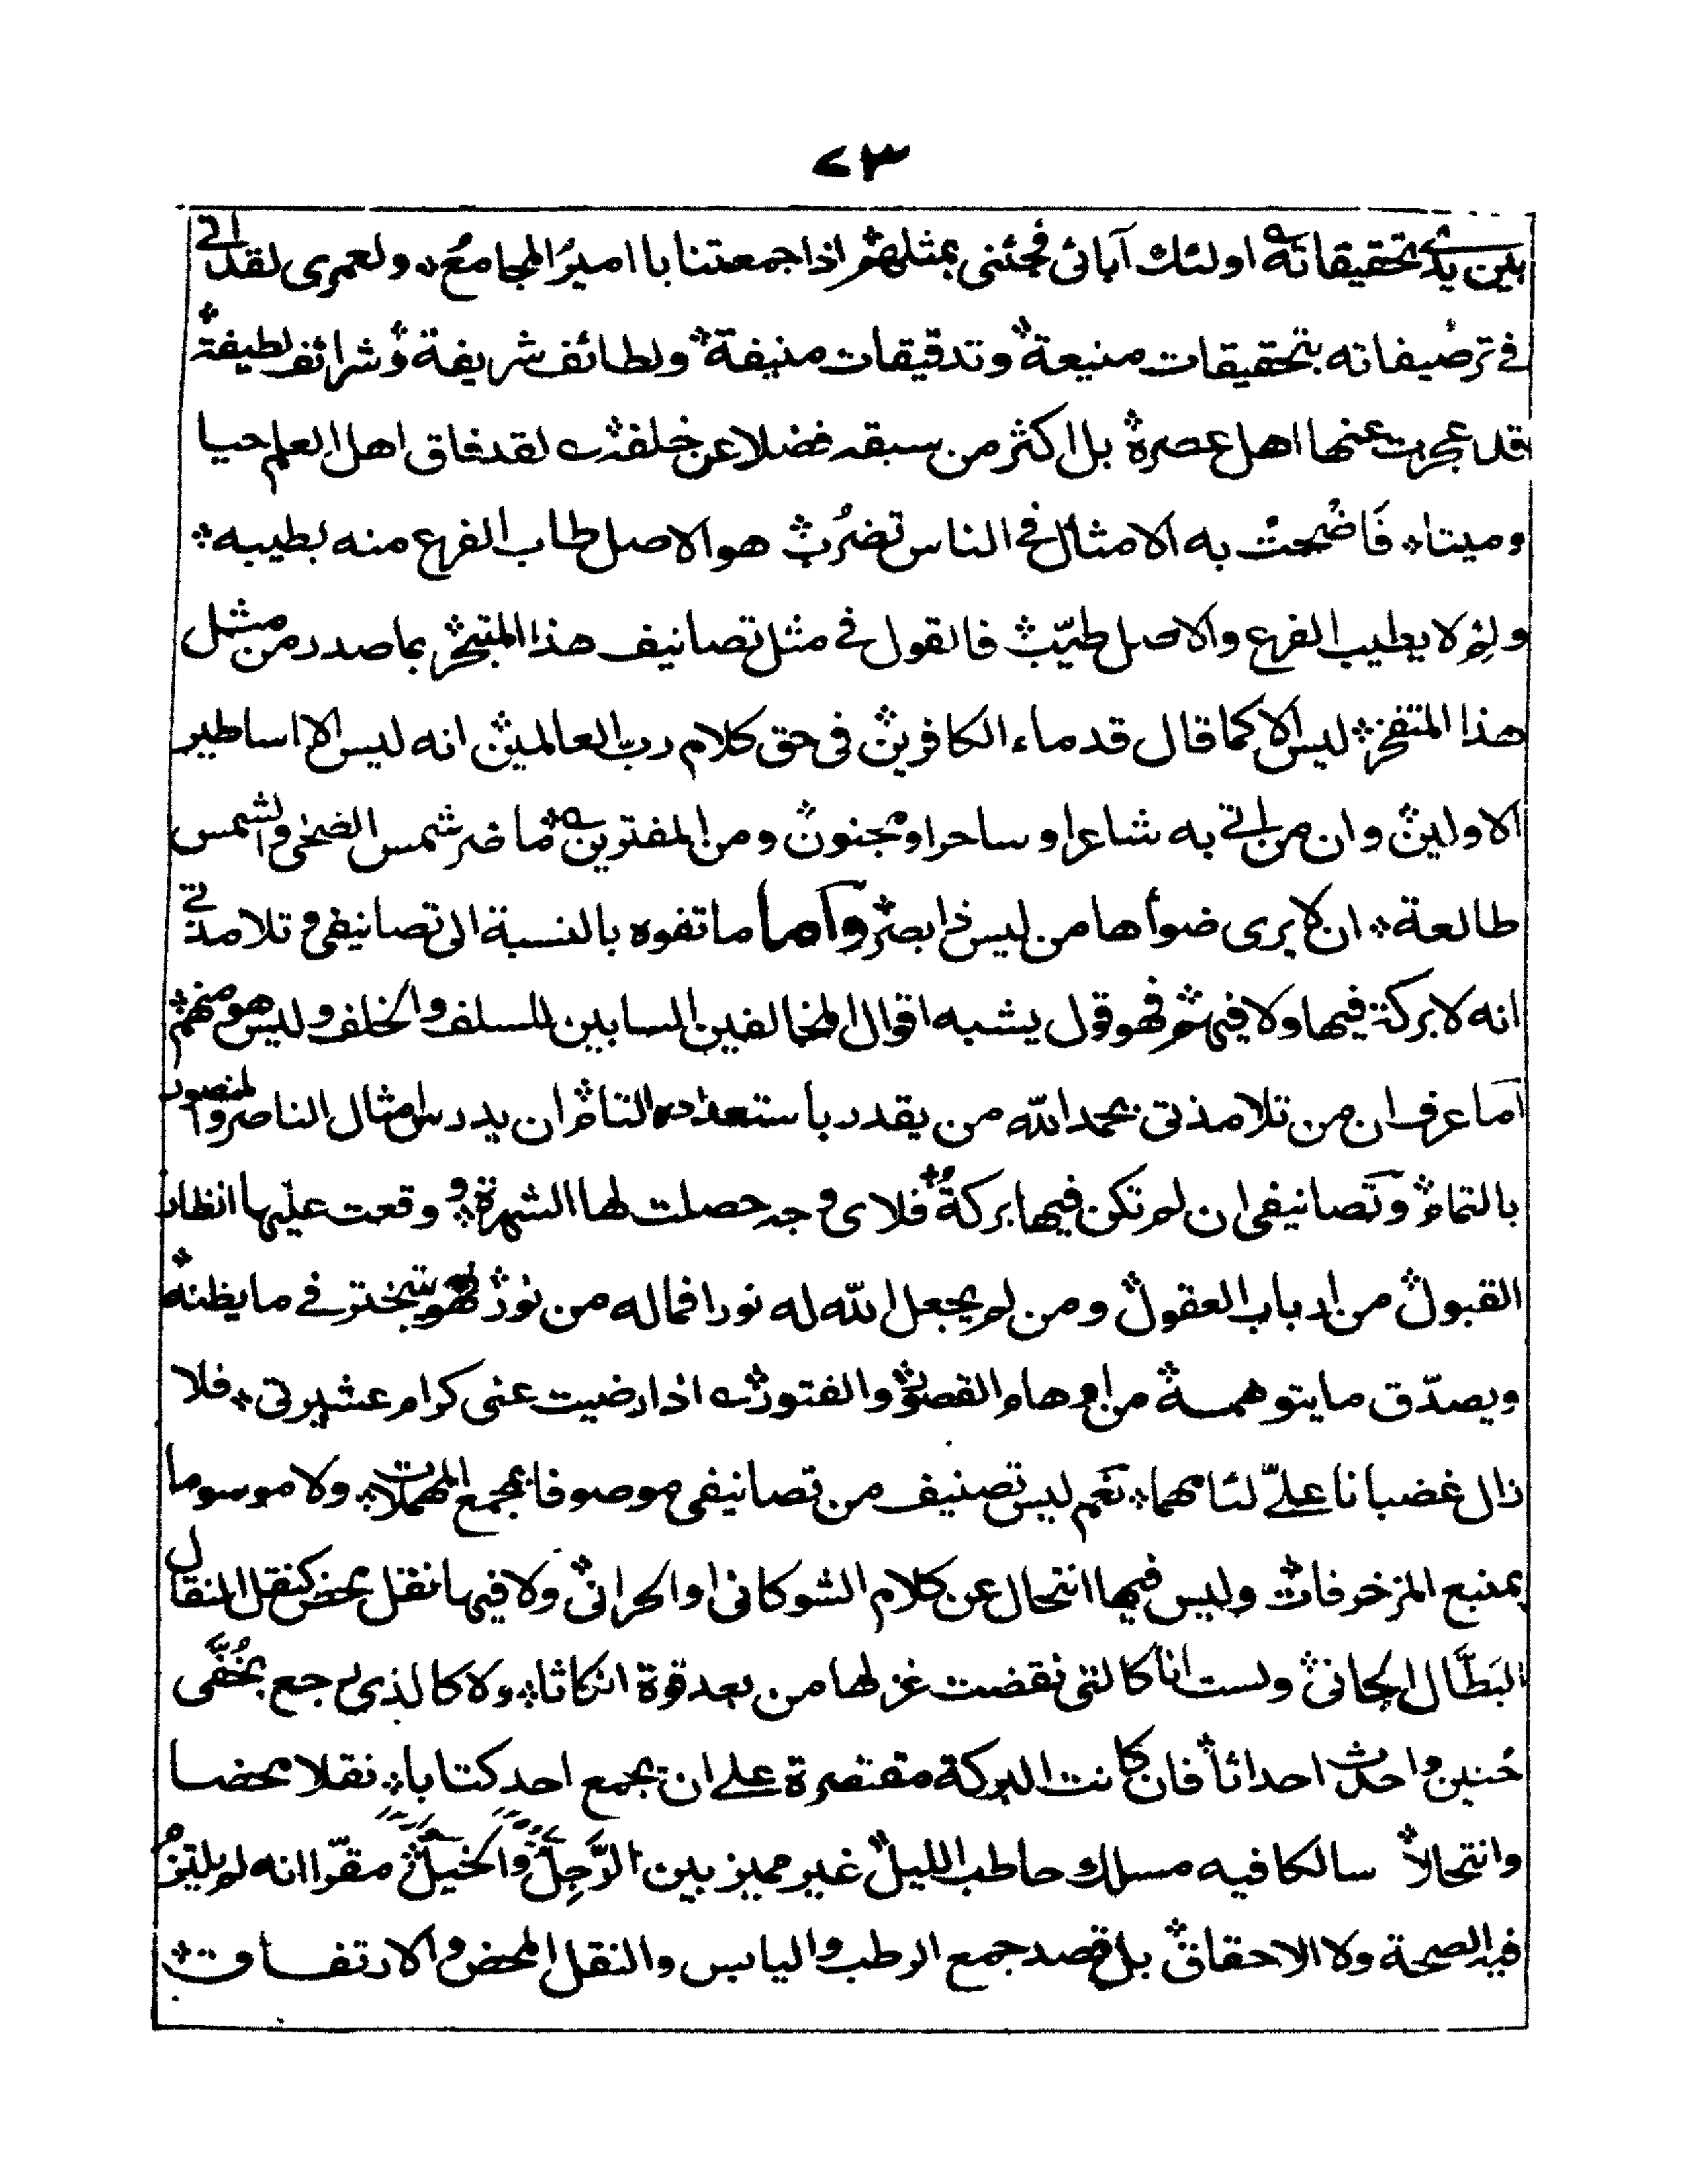 ٧٣
بين يدى تحقيقاته اولئك آبائى فجئنى بمثلهم اذا جمعتنا با امير المجامع ولعمرى لقد اتى
فى ترصيفاته بتحقيقات منيعة وتدقيقات منيفة ولطائف شريفة وشرائف لطيفة
قد عجزت عنها اهل عصره بل اكثر من سبقه فضلا عن خلفه لقد فاق اهل العلم حيا
وميتا فَاضْحت به الامثال فى الناس تضرُب هو الاصل طاب الفرع منه بطيبه
ولِمْ لا يطيب الفرع والاصل طيّب فالقول فى مثل تصانيف هذا المتبحر بما صدر من مثل
هذا المتفخر ليس الا كما قال قدماء الكافرين فى حق كلام رب العالمين انه ليس الا اساطير
الاولين وان من اتى به شاعرا او ساحرا ومجنون ومن المفترين ما ضر شمس الضحى والشمس
طالعة ان لا يرى ضوأها من ليس ذا بصر وآما ما تفوه بالنسبة الى تصانيفى وتلامذتى
انه لا بركة فيها ولا فيهم فهو قول يشبه اقوال المخالفين السابين للسلف والخلف وليس هو منهم
آما عرف ان من تلامذتى بحمد الله من يقدر باستعداده التام ان يدرس امثال الناصر والمنصور
بالتمام وتصانيفى ان لم تكن فيها بركةٌ فلاى وجه حصلت لها الشهرة ووقعت عليها انظار
القبول من ارباب العقول ومن لم يجعل الله له نورا فماله من نور فهو يتبختر فى ما يظنه
ويصدّق ما يتوهمه من اوهام القصور والفتور اذا رضيت عنى كرام عشيرتى فلا
زال غضبانا علىّ لئامهما نَعَم ليس تصنيف من تصانيفى موصوفا بمجمع المهملات ولا موسوما
بمنبع المزخرفات وليس فيها انتحال عن كلام الشوكانى او الحرانى ولا فيها نقل محض كنقل المنقال
البَطَّال الجانى ولست انا كالتى نقضت غزلها من بعد قوة انكاثا ولا كالذى رجع بخُفَّى
حُنين واحدث احداثا فان كانت البركة مقتصرة على ان يجمع احد كتابا نقلا محضا
وانتحالا سالكا فيه مسلك حاطب الليل غير مميز بين الرَّجِل والخيل مقرّا انه لم يلتزم
فيه الصحة ولا الاحقاق بل قصد جمع الرطب واليابس والنقل المحض والارتفاق